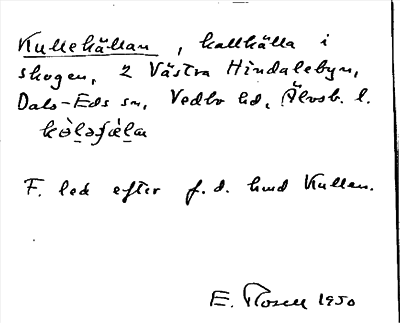 Kullekällan, kallkälla i
skogen, 2 Västra Hindalebyn,
Dals-Eds sn, Vedbo hd, Älvsb. l.
F. led efter f.d. hmd Kullen.
E. Rosell 1950